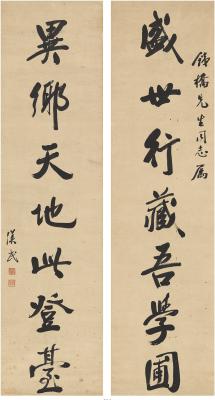 錦橋先生同志属
盛世行藏吾學圃
異鄉天地此登臺
漢民